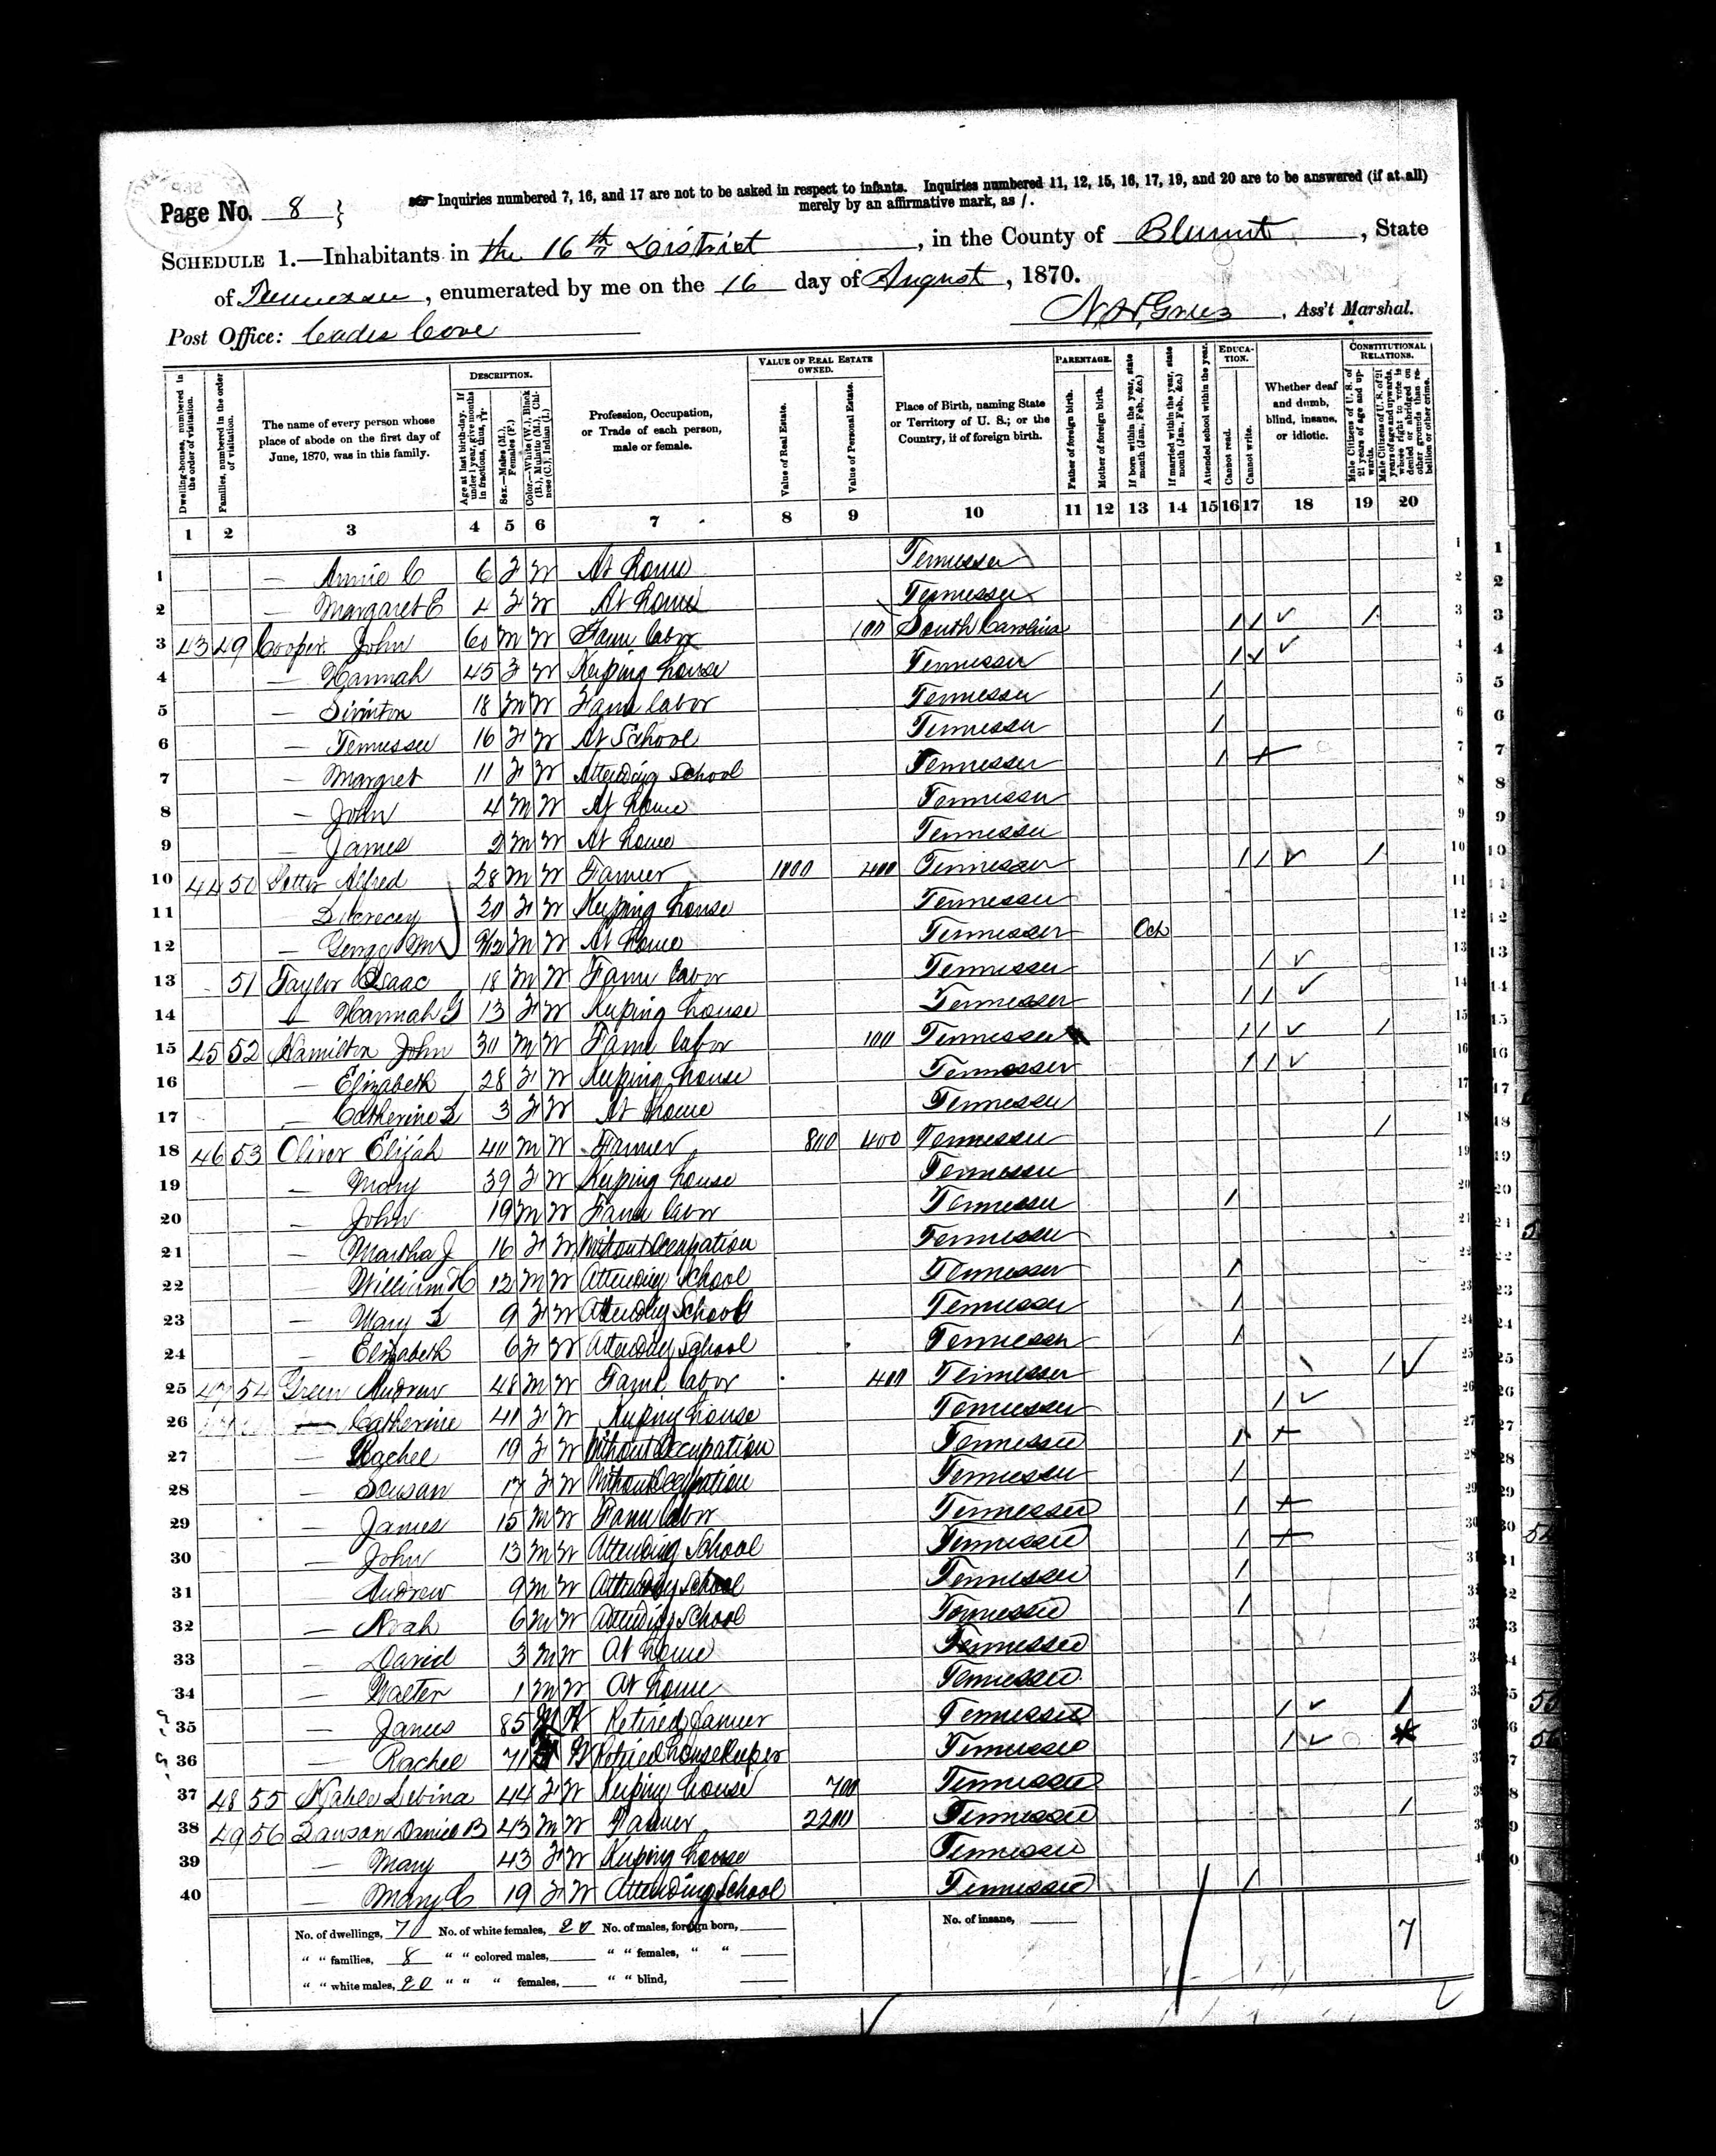 Page No. 8 }
Inquiries numbered 7, 16, and 17 are not to be asked in respect to infants. Inquiries numbered 11, 12, 15, 16, 17, 19, and 20 are to be answered (if at all)
merely by an affirmative mark, as /.
SCHEDULE 1.—Inhabitants in the 16th District, in the County of Blount, State
of Tennessee, enumerated by me on the 16 day of August, 1870.
Post Office: Cades Cove
Ass't Marshal.
DESCRIPTION. VALUE OF REAL ESTATE OWNED. PARENTAGE. EDUCATION. CONSTITUTIONAL RELATIONS.
Dwelling-houses, numbered in the order of visitation.
Families, numbered in the order of visitation.
The name of every person whose place of abode on the first day of June, 1870, was in this family.
Age at last birth-day. If under 1 year, give months in fractions, thus,
Sex.—Males (M.), Females (F.)
Color.—White (W.), Black (B.), Mulatto (M.), Chinese (C.), Indian (I.)
Profession, Occupation, or Trade of each person, male or female.
Value of Real Estate.
Value of Personal Estate.
Place of Birth, naming State or Territory of U. S.; or the Country, if of foreign birth.
Father of foreign birth.
Mother of foreign birth.
If born within the year, state month (Jan., Feb., &c.)
If married within the year, state month (Jan., Feb., &c.)
Attended school within the year.
Cannot read.
Cannot write.
Whether deaf and dumb, blind, insane, or idiotic.
Male Citizens of U. S. of 21 years of age and upwards.
Male Citizens of U. S. of 21 years of age and upwards, whose right to vote is denied or abridged on other grounds than rebellion or other crime.
1 2 3 4 5 6 7 8 9 10 11 12 13 14 15 16 17 18 19 20
1 — Annie C 6 F W At home Tennessee 1
2 — Margaret E 4 F W At home Tennessee 2
3 43 49 Cooper John 60 M W Farm labor 100 South Carolina / / ✓ / 3
4 — Hannah 45 F W Keeping house Tennessee / ✓ ✓ 4
5 — 18 M W Farm labor Tennessee / 5
6 — Tennessee 16 F W At School Tennessee / 6
7 — Margret 11 F W Attending School Tennessee / + 7
8 — John 4 M W At home Tennessee 8
9 — James 2 M W At home Tennessee 9
10 44 50 Alfred 28 M W Farmer 1000 400 Tennessee / / ✓ / 10
11 20 F W Keeping house Tennessee 11
12 — 9/12 M W At home Tennessee Oct 12
13 51 Taylor Isaac 18 M W Farm labor Tennessee / ✓ 13
14 — Hannah 13 F W Keeping house Tennessee / / ✓ 14
15 45 52 Hamilton John 30 M W Farm labor 100 Tennessee / / ✓ / 15
16 — Elizabeth 28 F W Keeping house Tennessee / / ✓ 16
17 — Catherine L 3 F W At home Tennessee 17
18 46 53 Oliver Elijah 40 M W Farmer 800 400 Tennessee / 18
19 — Mary 39 F W Keeping house Tennessee 19
20 — John 19 M W Farm labor Tennessee / 20
21 — Martha J 16 F W Without Occupation Tennessee 21
22 — William H 12 M W Attending School Tennessee / 22
23 — Mary L 9 F W Attending School Tennessee / 23
24 — Elizabeth 6 F W Attending School Tennessee / 24
25 47 54 Green Andrew 48 M W Farm labor 400 Tennessee / ✓ 25
26 — Catherine 41 F W Keeping house Tennessee / ✓ 26
27 — Rachel 19 F W Without Occupation Tennessee / + 27
28 — Sousan 17 F W Without Occupation Tennessee / 28
29 — James 15 M W Farm labor Tennessee / + 29
30 — John 13 M W Attending School Tennessee / + 30
31 Andrew 9 M W Attending School Tennessee / 31
32 — Noah 6 M W Attending School Tennessee / 32
33 — David 3 M W At home Tennessee 33
34 — Walter 1 M W At home Tennessee 34
35 — James 85 M W Retired Farmer Tennessee / ✓ / 35
36 — Rachel 71 W Retired housekeeper Tennessee / ✓ 36
37 48 55 44 F W Keeping house 700 Tennessee
38 49 56 Daniel B 43 M W Farmer 2200 Tennessee /
39 — Mary 43 F W Keeping house Tennessee
40 — Mary C 19 F W Attending School Tennessee /
No. of dwellings, 7 No. of white females, 20 No. of males, foreign born, No. of insane, 7
" " families, 8 " " colored males, " " females, " "
" " white males, 20 " " " females, " " blind,